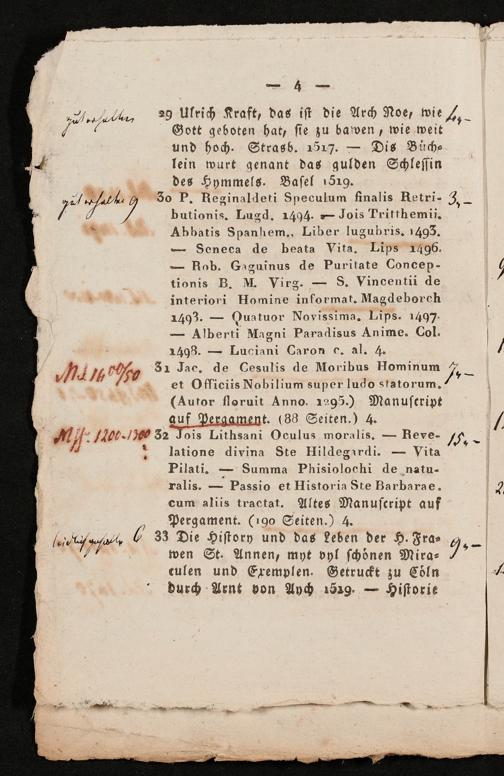 — 4 —
gut erhalten 29 Ulrich Kraft, das ist die Arch Noe, wie 4,-
Gott geboten hat, sie zu bawen, wie weit
und hoch. Strasb. 1517. — Dis Büch=
lein wurt genant das gulden Schlessin
des Hymmels. Basel 1519.
gut erhalten 9 30 P. Reginaldeti Speculum finalis Retri- 3,-
butionis. Lugd. 1494. — Jois Tritthemii.
Abbatis Spanhem., Liber lugubris. 1493.
— Seneca de beata Vita. Lips 1496.
— Rob. Gaguinus de Puritate Concep-
tionis B. M. Virg. — S. Vincentii de
interiori Homine informat. Magdeborch
1493. — Quatuor Novissima. Lips. 1497.
— Alberti Magni Paradisus Anime. Col.
1498. — Luciani Caron c. al. 4.
31 Jac. de Cesulis de Moribus Hominum 7,-
1400/50 et Officiis Nobilium super ludo statorum.
(Autor floruit Anno. 1295.) Manuscript
auf Pergament. (88 Seiten.) 4.
Mss. 1200-1300 32 Jois Lithsani Oculus moralis. — Reve- 15,-
latione divina Ste Hildegardi. — Vita
Pilati. — Summa Phisiolochi de natu-
ralis. — Passio et Historia Ste Barbarae.
cum aliis tractat. Altes Manuscript auf
Pergament. (190 Seiten.) 4.
6 33 Die History und das Leben der H. Fra= 9,-
wen St. Annen, myt vyl schönen Mira=
culen und Exemplen. Getruckt zu Cöln
durch Arnt von Aych 1519. — Historie